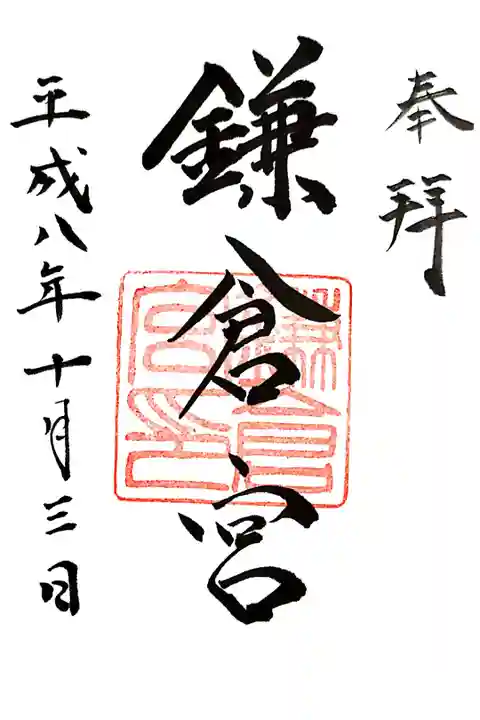 奉拝
鎌倉宮
鎌倉宮印
平成八年十月三日